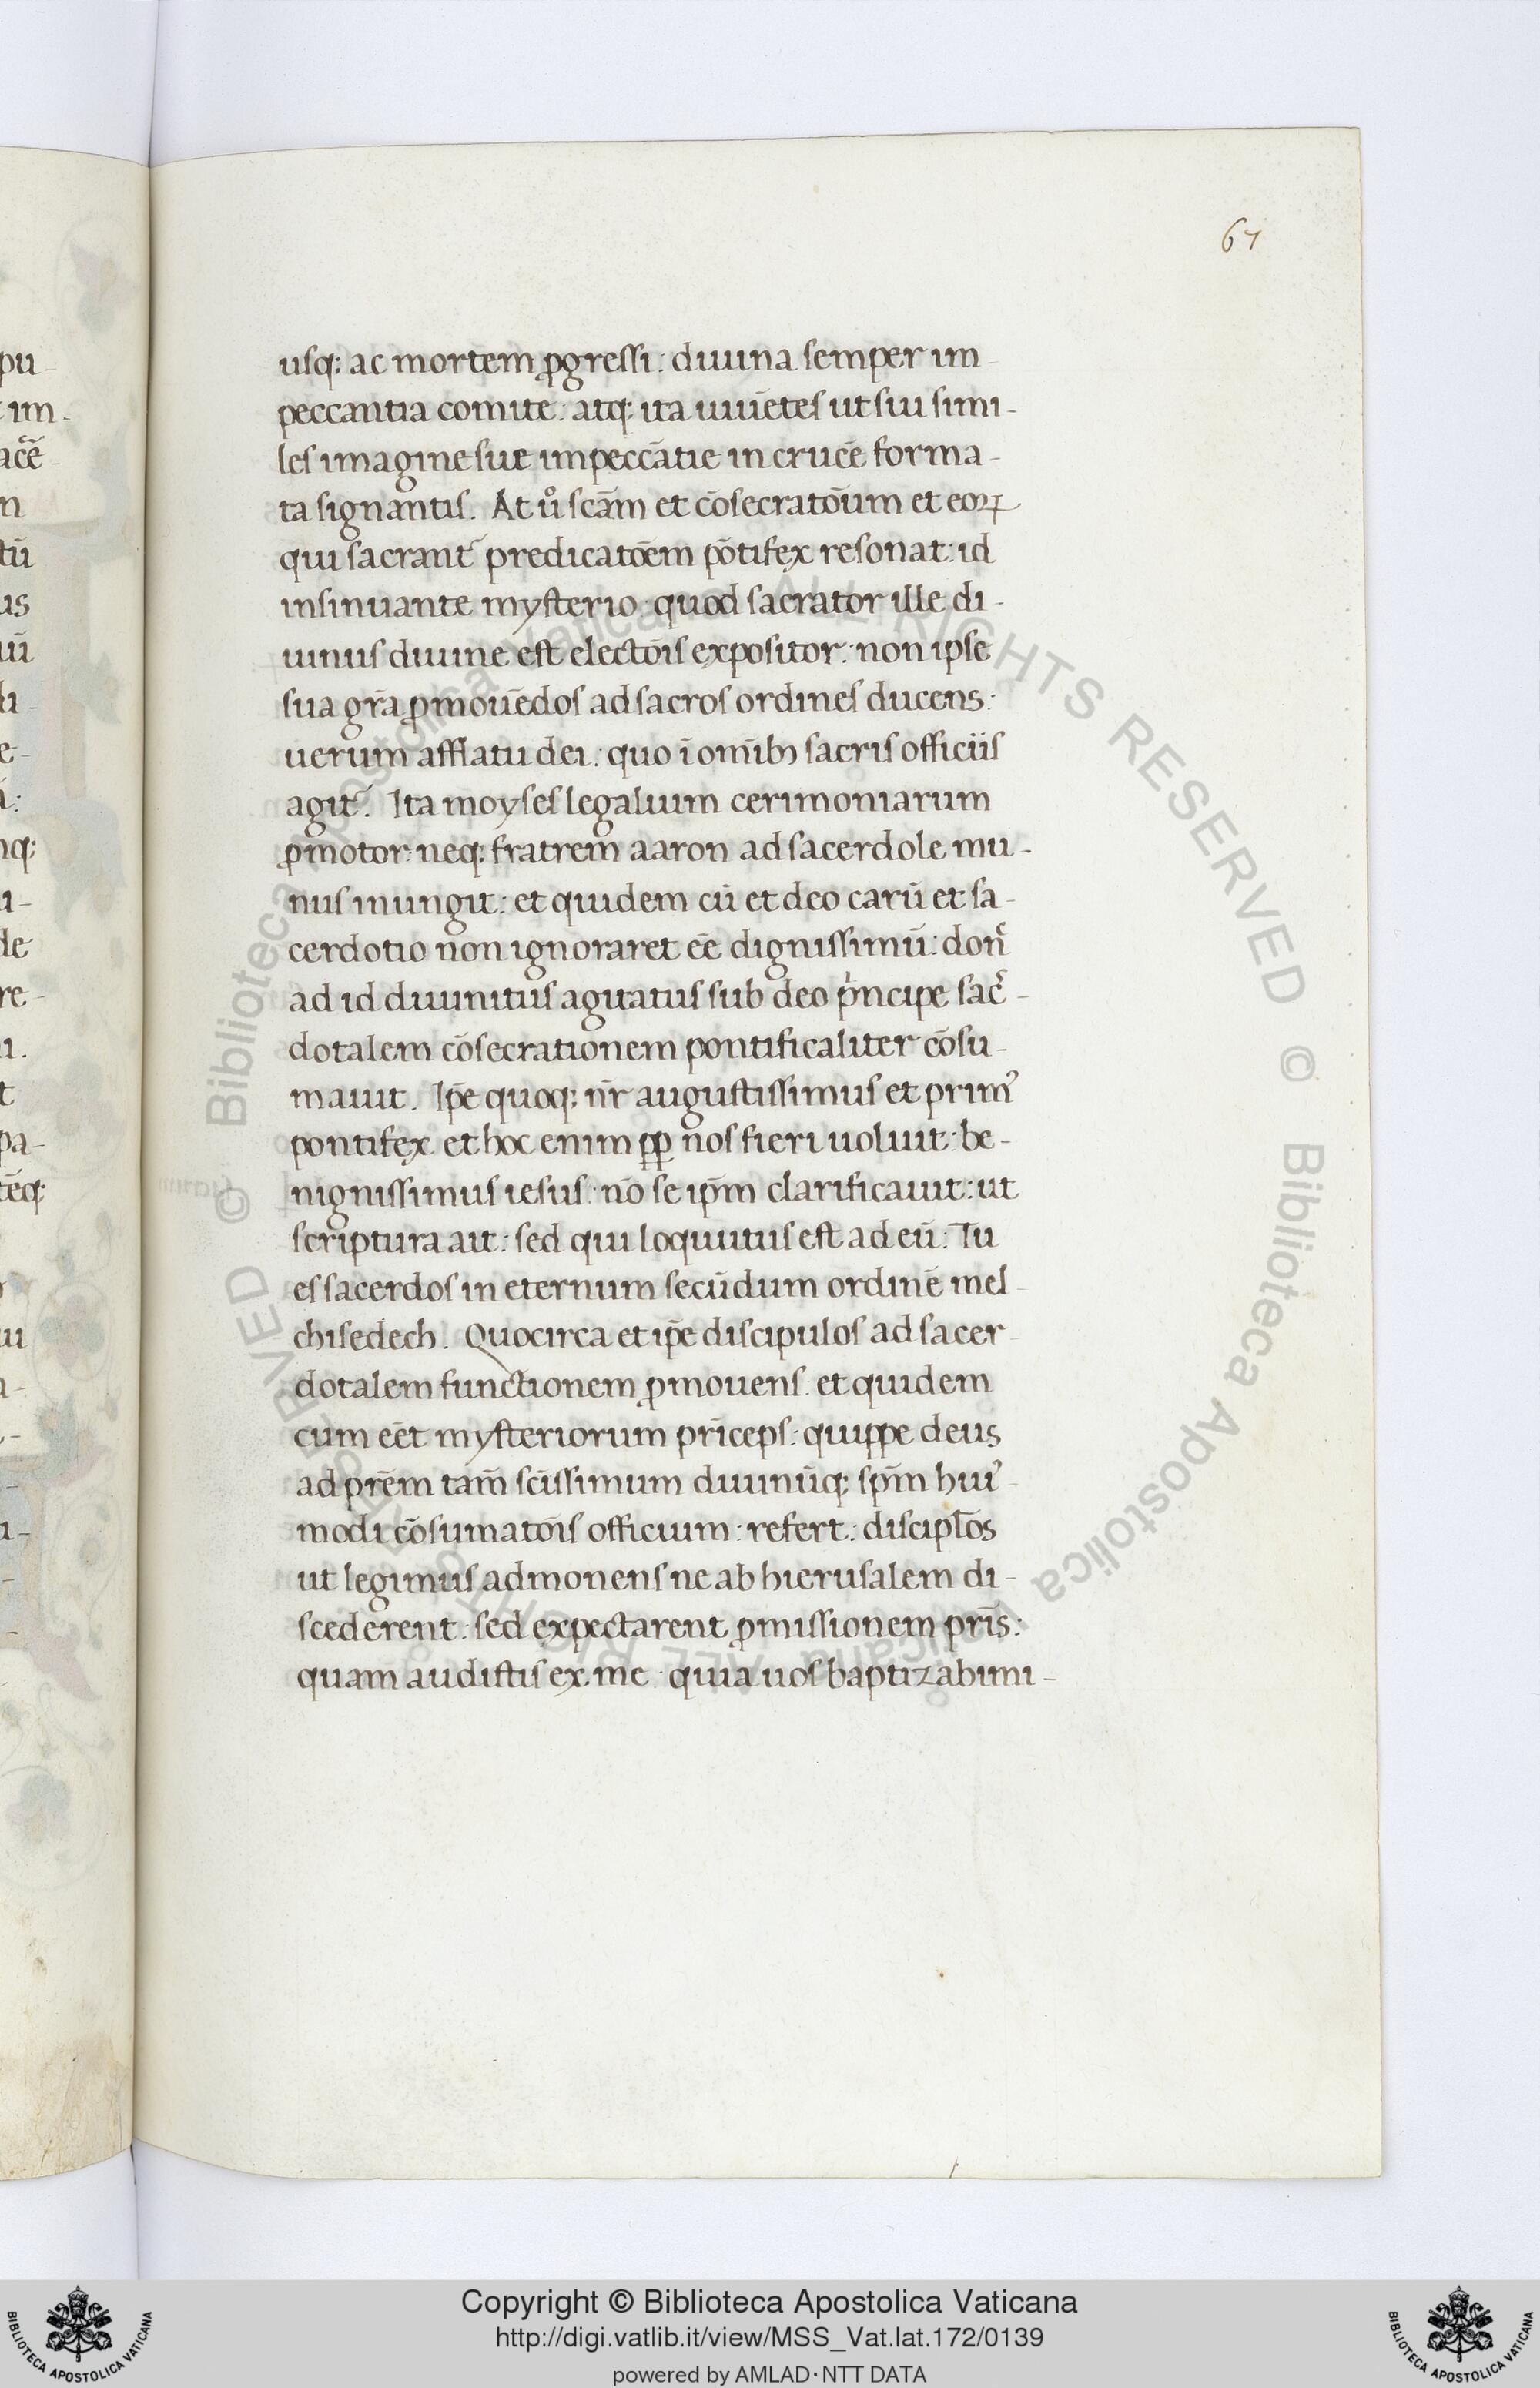 67
usq; ac mortem ꝓgressi: diuina semper im-
peccantia comite: atq; ita uiuētes ut sui simi-
les imagine sue impeccātie in crucē forma-
ta signantis. At u̾ scām et cōsecratōum et eoꝝ
qui sacrant᷑ predicatōem pōtifex resonat: id
insinuante mysterio quod sacrator ille di-
uinus diuine est electōis expositor: non ipse
sua gr̄a ꝓmouēdos ad sacros ordines ducens:
uerum afflatu dei: quo ī om̄ibꝫ sacris officiis
agit᷑. Ita moyses legalium cerimoniarum
ꝓmotor: neq; fratrem aaron ad sacerdole mu-
nus inungit: et quidem cū et deo carū et sa-
cerdotio non ignoraret eē dignissimū: don̄
ad id diuinitus agitatus sub deo pͥncipe sac̄-
dotalem cōsecrationem pontificaliter cōsu-
mauit. Ip̄e quoq; nr̄ augustissimus et prim᾽
pontifex et hoc enim ꝓp nos fieri uoluit: be-
nignissimus iesus: nō se ip̄m clarificauit: ut
scriptura ait: sed qui loquutus est ad eū: Tu
es sacerdos in eternum secūdum ordinē mel-
chisedech. Quocirca et ip̄e discipulos ad sacer-
dotalem functionem ꝓmouens. et quidem
cum eēt mysteriorum prīceps: quippe deus
ad prēm tam̄ scīssimum diuinūq; sp̄m hui᾽-
modi cōsumatōis officium: refert: discipl̄os
ut legimus admonens ne ab hierusalem di-
scederent: sed expectarent ꝓmissionem pr̄is:
quam audistis ex me quia uos baptizabimi-
pu-
im-
acē-
tū
us
uū
di-
e-
de
re-
pa-
tēq;
Copyright © Biblioteca Apostolica Vaticana
http://digi.vatlib.it/view/MSS_Vat.lat.172/0139
powered by AMLAD·NTT DATA
BIBLIOTECA APOSTOLICA VATICANA
BIBLIOTECA APOSTOLICA VATICANA